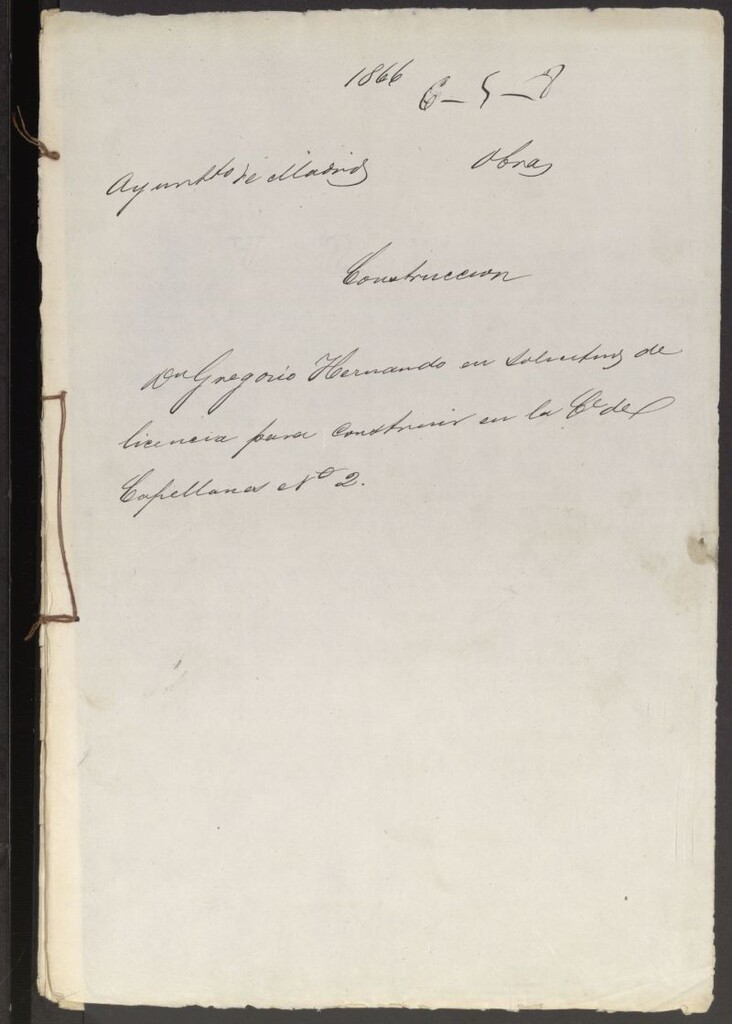 1866 6-5-8
Ayuntto de Madrid Obras
Construccion
Dn Gregorio Hernando en solicitud de
licencia para construir en la Ce de
Capellanes No 2.